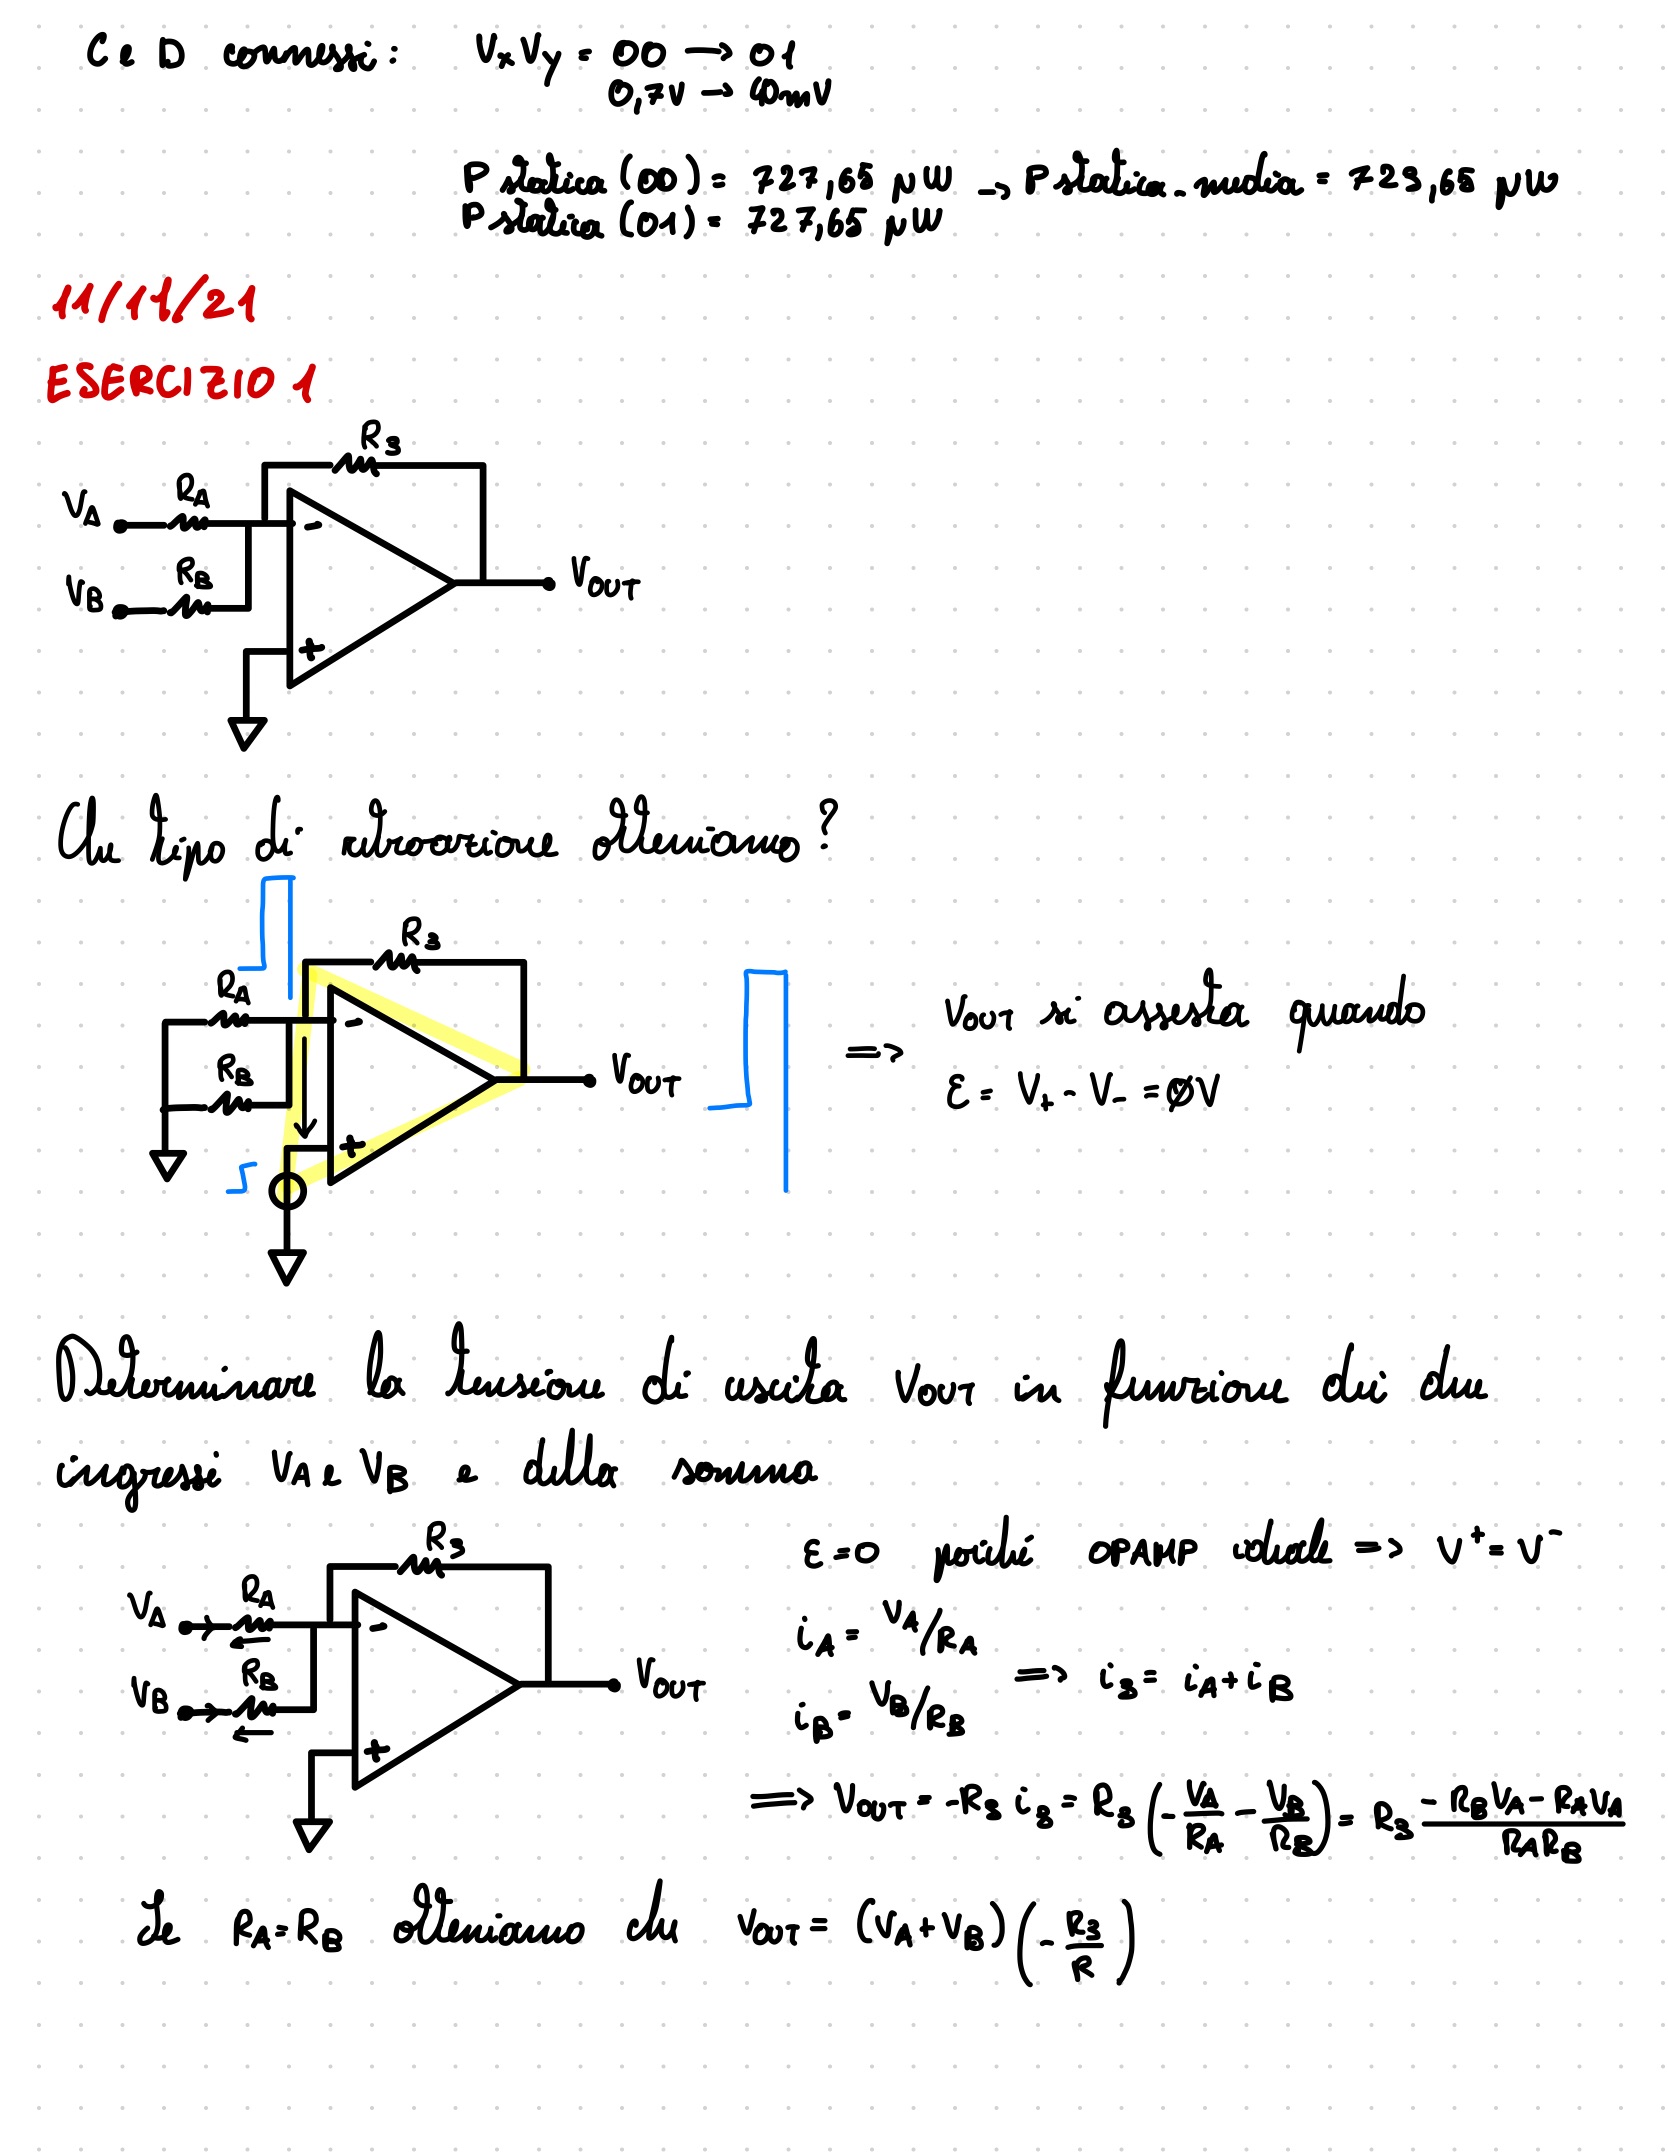 C e D connessi: VxVy = 00 → 01
0,7V → 40mV
P statica (00) = 727,65 µW → P statica_media = 723,65 µW
P statica (01) = 727,65 µW
11/11/21
ESERCIZIO 1
R3
VA RA
-
VB RB
VOUT
+
Che tipo di retroazione otteniamo?
R3
RA
-
VOUT si assesta quando
RB
VOUT
=>
ε = V+ - V- = ØV
+
Determinare la tensione di uscita VOUT in funzione dei due
ingressi VA e VB e della somma
R3
ε=0 poiché OPAMP ideale => V⁺ = V⁻
VA RA
-
iA = VA/RA
VB RB
VOUT
=> i3 = iA + iB
iB = VB/RB
+
=> VOUT = -R3 i3 = R3 (-VA/RA - VB/RB) = R3 (-RBVA - RAVA)/(RARB)
Se RA=RB otteniamo che VOUT = (VA+VB)(-R3/R)